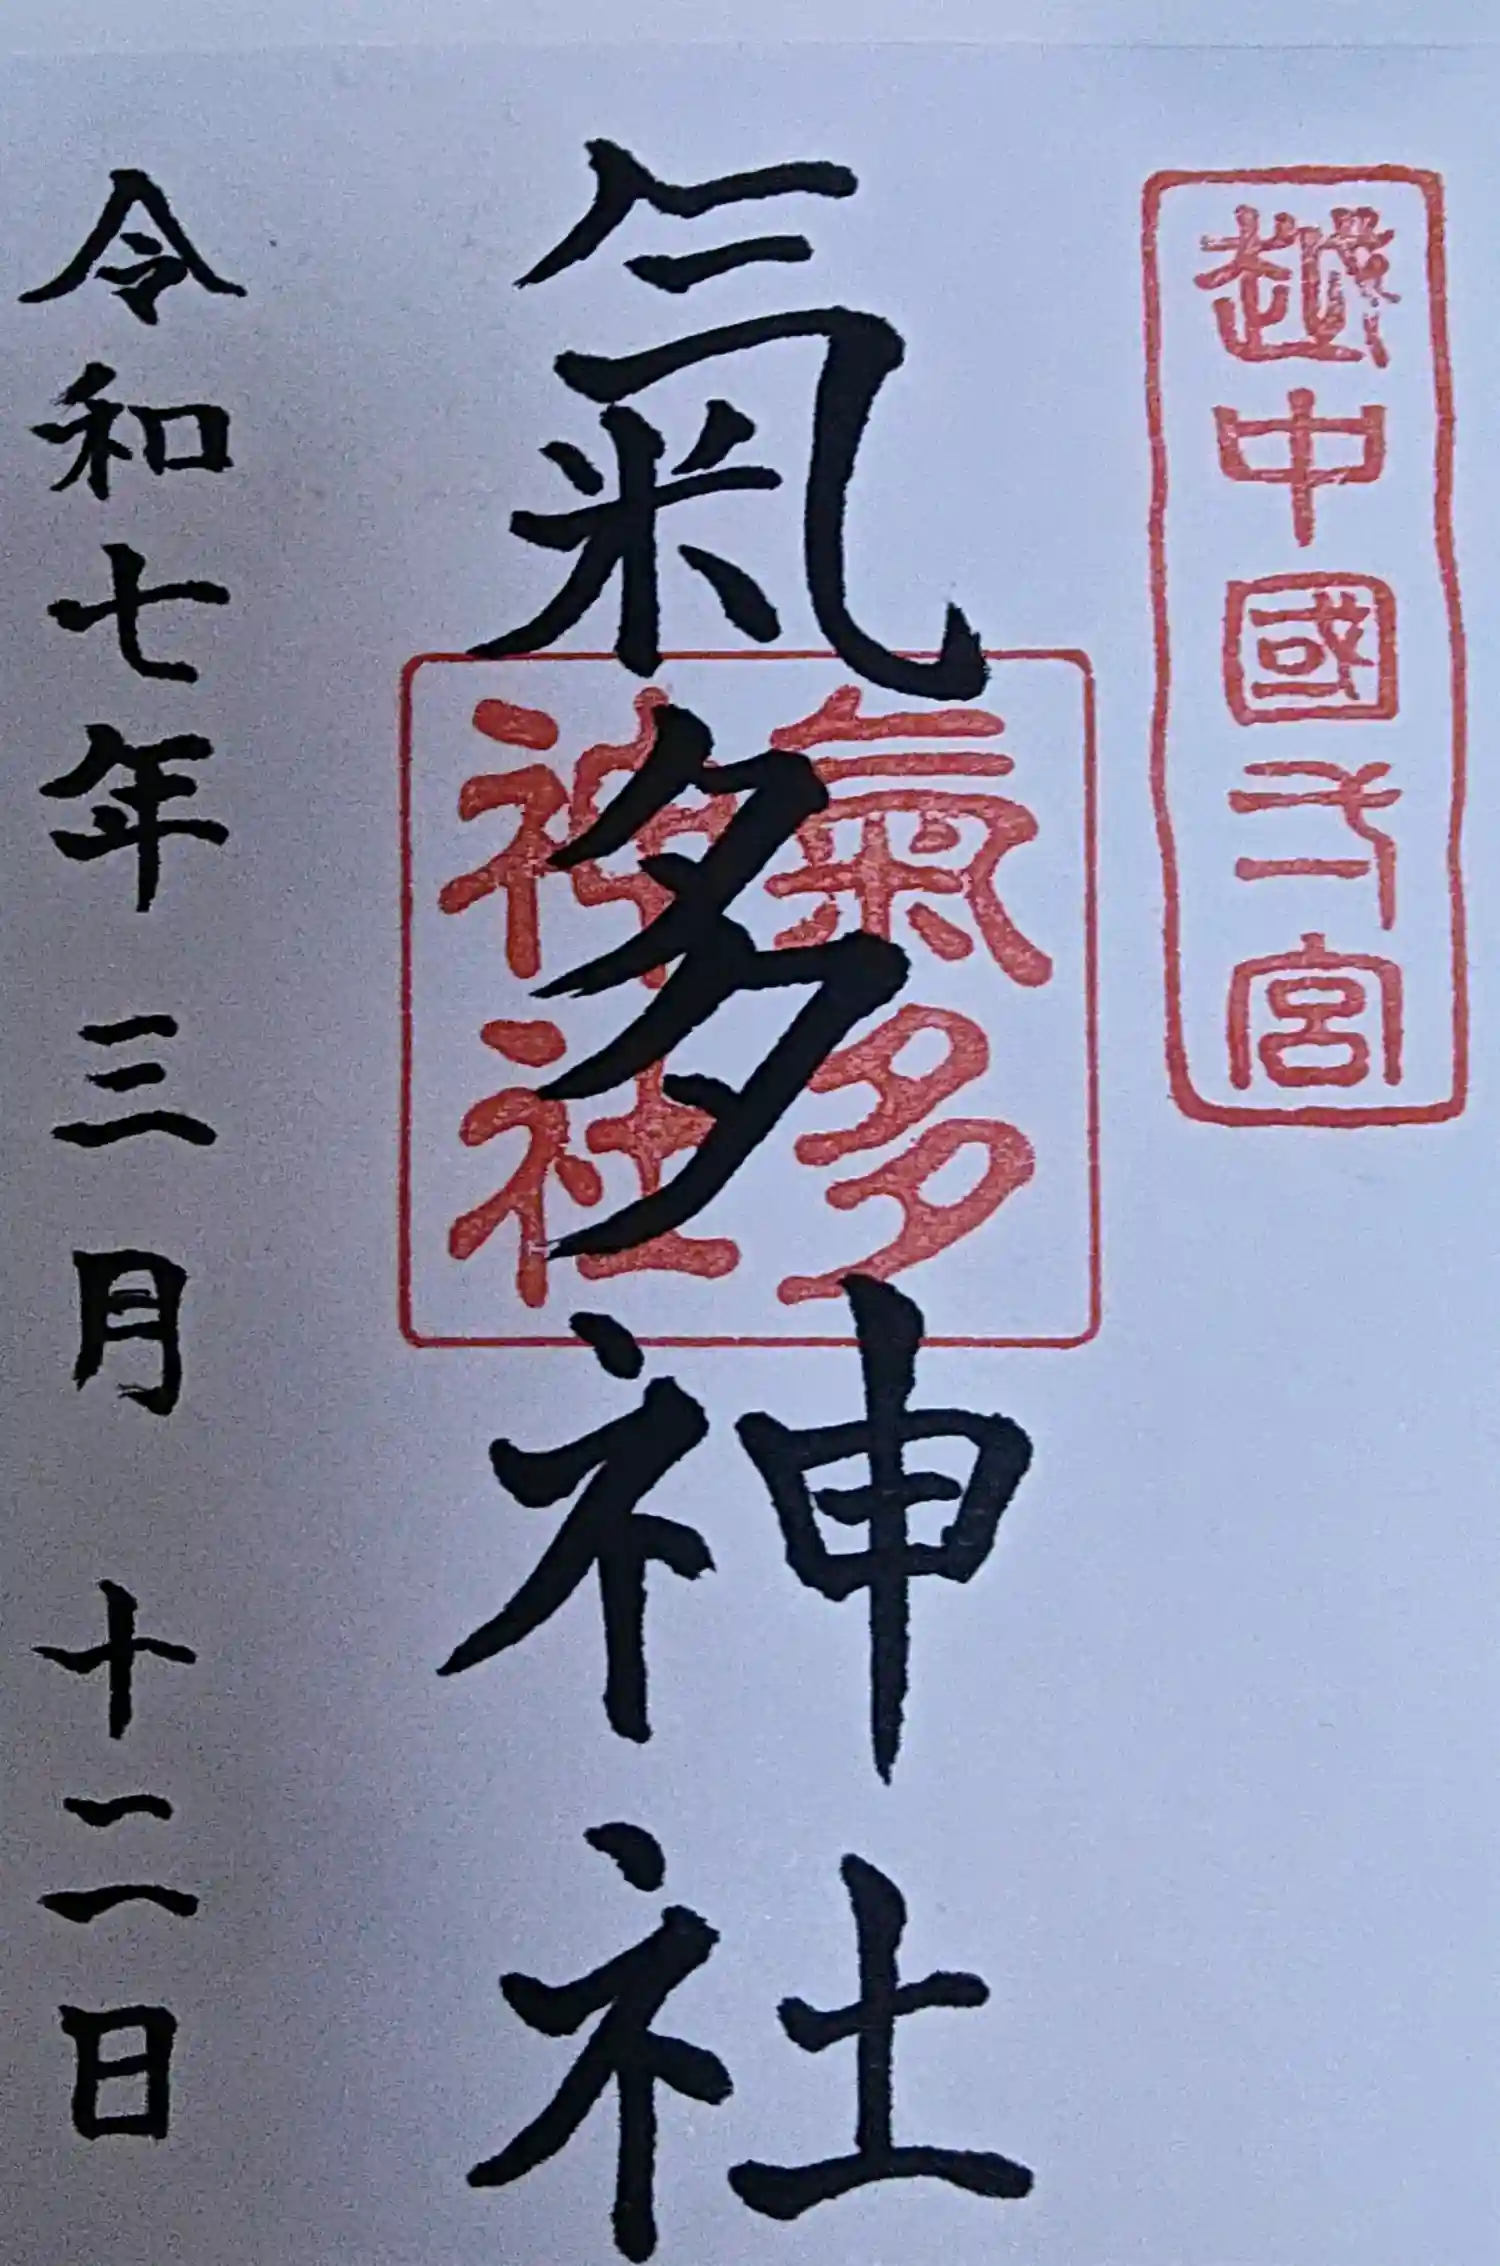 越中國弌宮
氣多神社
氣多
神社
令和七年三月十二日